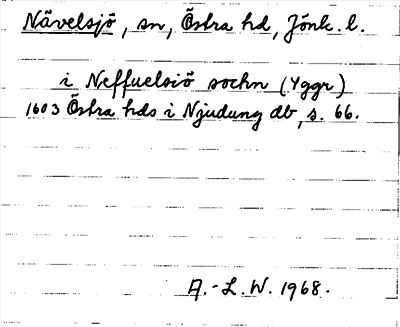 Nävelsjö, sn, Östra hd, Jönk. l.
i Neffuelsiö sochn (Yggr)
1603 Östra hds i Njudung db, s. 66.
A.-L. W. 1968.